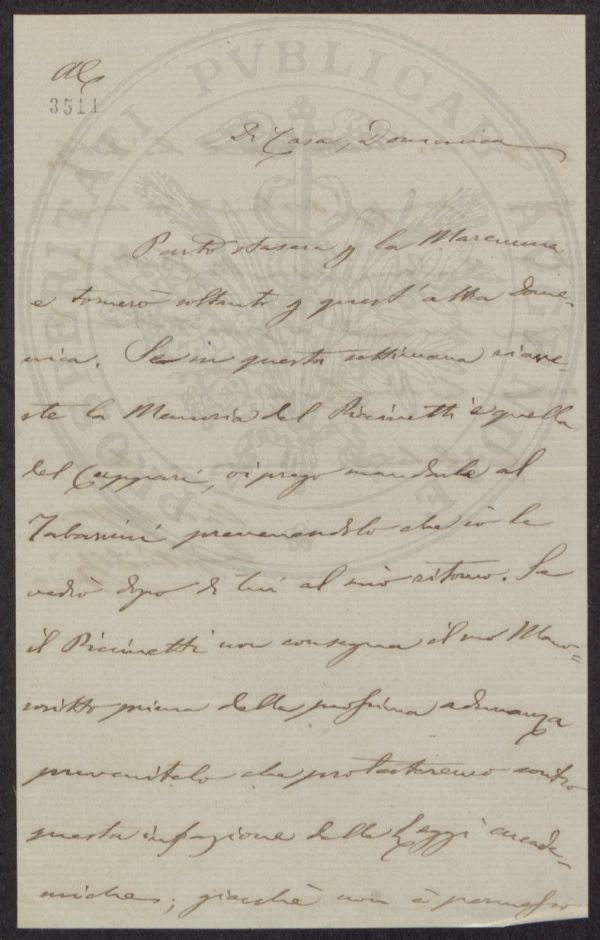 PROSPERITATI PVBLICAE AVGENDAE
3511
Di Casa, Domenica
Parto stasera p la Maremma
e tornerò soltanto p quest'altra dome-
nica. Se in questa settimana riave-
ste la Memoria del Piccinetti e quella
del Cuppari, vi prego mandarle al
Tabarrini prevenendolo che io le
vedrò dopo di lui al mio ritorno. Se
il Piccinetti non consegna il suo Mano-
scritto prima della prossima adunanza
prevenitelo che protesteremo contro
questa infrazione delle Leggi accade-
miche; giacchè non è permesso